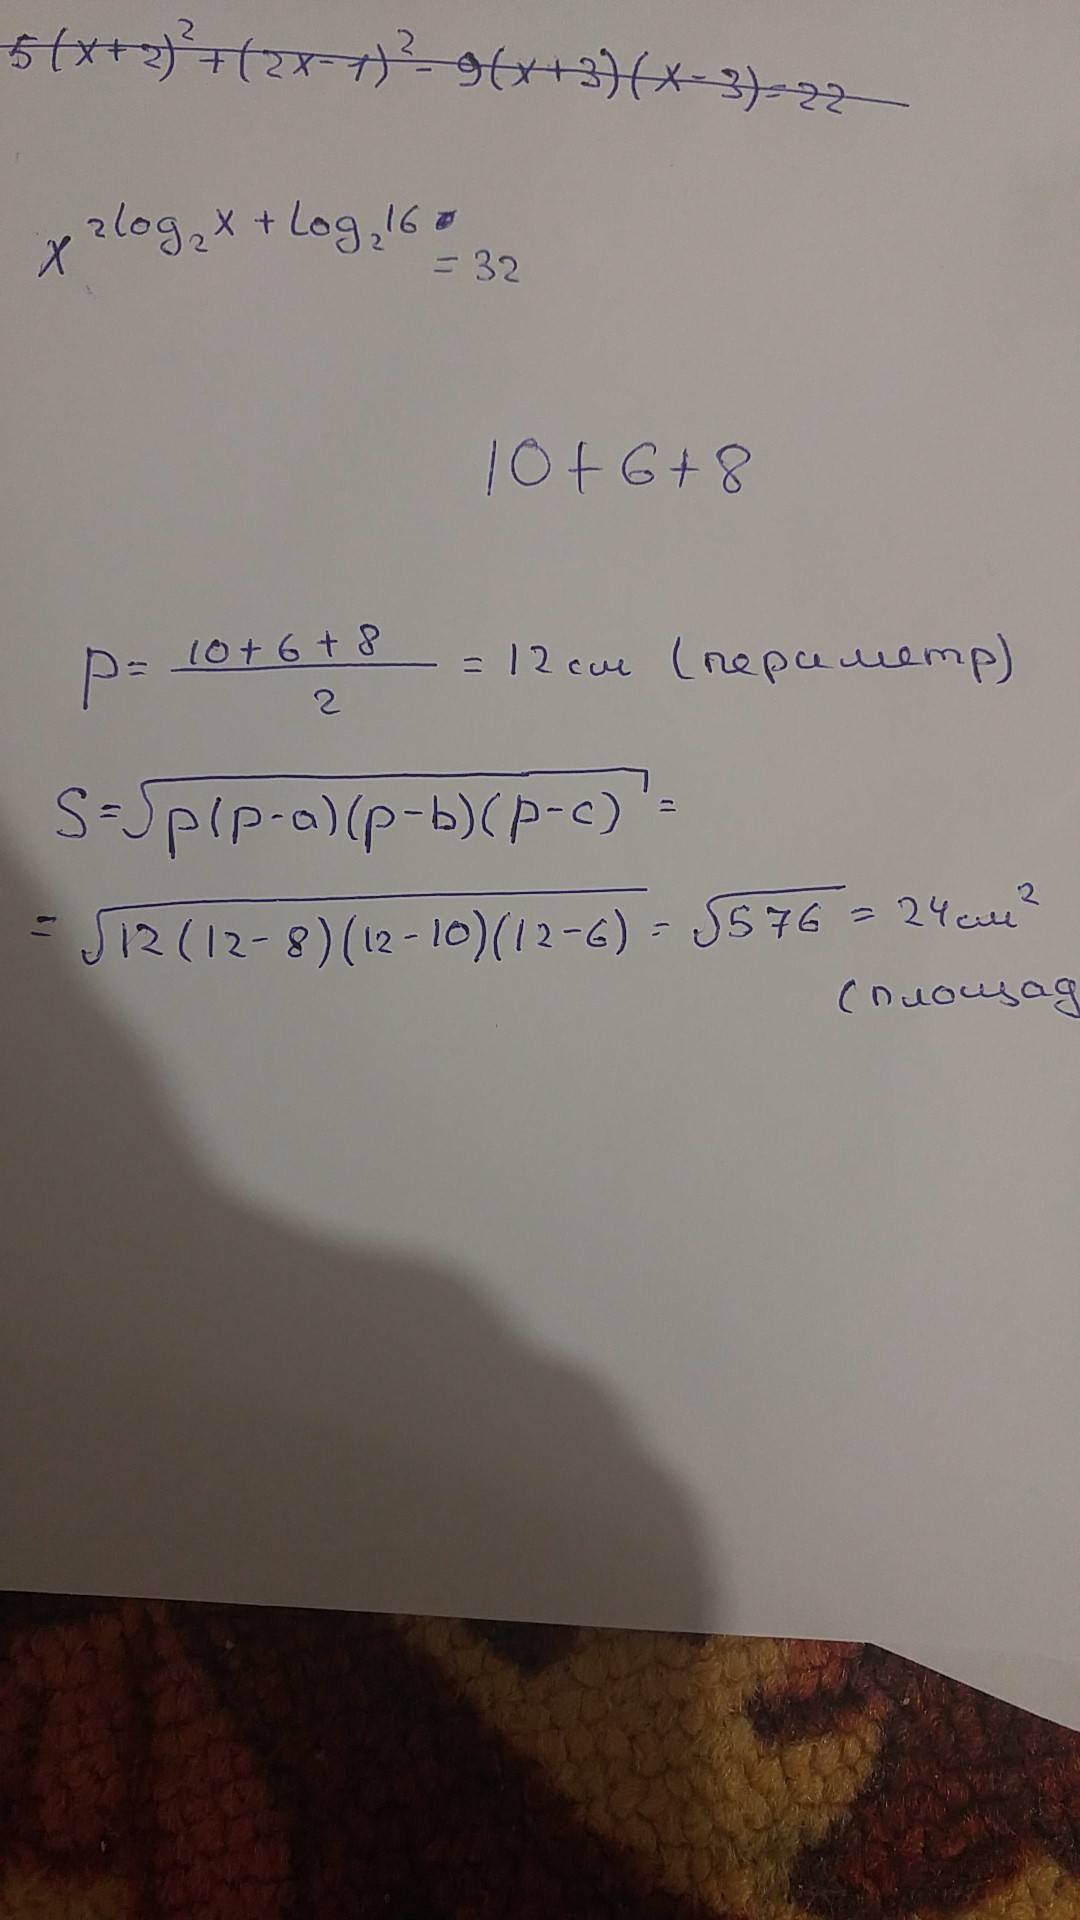 5(x+2)² + (2x-1)² - 9(x+3)(x-3) = 22
x^(2log₂x + log₂16) = 32
10 + 6 + 8
p = (10+6+8)/2 = 12 см (периметр)
S = √(p(p-a)(p-b)(p-c)) =
= √(12(12-8)(12-10)(12-6)) = √576 = 24 см²
(площад